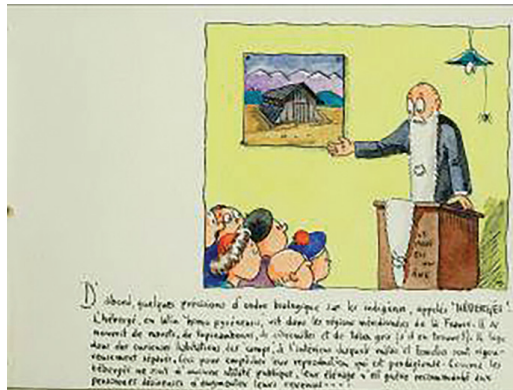 LE
D'abord, quelques précisions d'ordre biologique sur les indigènes, appelés "HÉBERGÉS".
L'hébergé, en latin "homo pyreneus", vit dans les régions méridionales de la France. Il se
nourrit de navets, de topinambours, de citrouilles et de tabac gris (s'il en trouve!). Il loge
dans des curieuses habitations des camps, à l'intérieur desquels mâles et femelles sont rigou-
reusement séparés, ceci pour empêcher leur reproduction qui est prodigieuse. Comme les
hébergés ne sont d'aucune utilité publique, leur élevage n'est guère recommandé aux
personnes désireuses d'augmenter leurs revenus